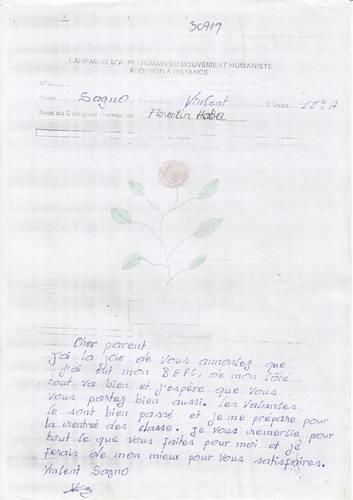 30919
CAMPAGNE D'APPUI HUMAIN DU MOUVEMENT HUMANISTE
ADOPTION A DISTANCE
N°
Nom: Sagno Vincent Classe: 11e A
Nom du Délégué Humaniste Florentin Haba
Cher parent
J'ai la joie de vous annoncez que
j'ai eut mon BEPC, de mon côté
tout va bien et j'espère que vous
vous portez bien aussi. Les vacances
se sont bien passé et je me prépare pour
la rentrée des classe. Je vous remercie pour
tout ce que vous faites pour moi et je
ferais de mon mieux pour vous satisfaires.
Vincent Sagno